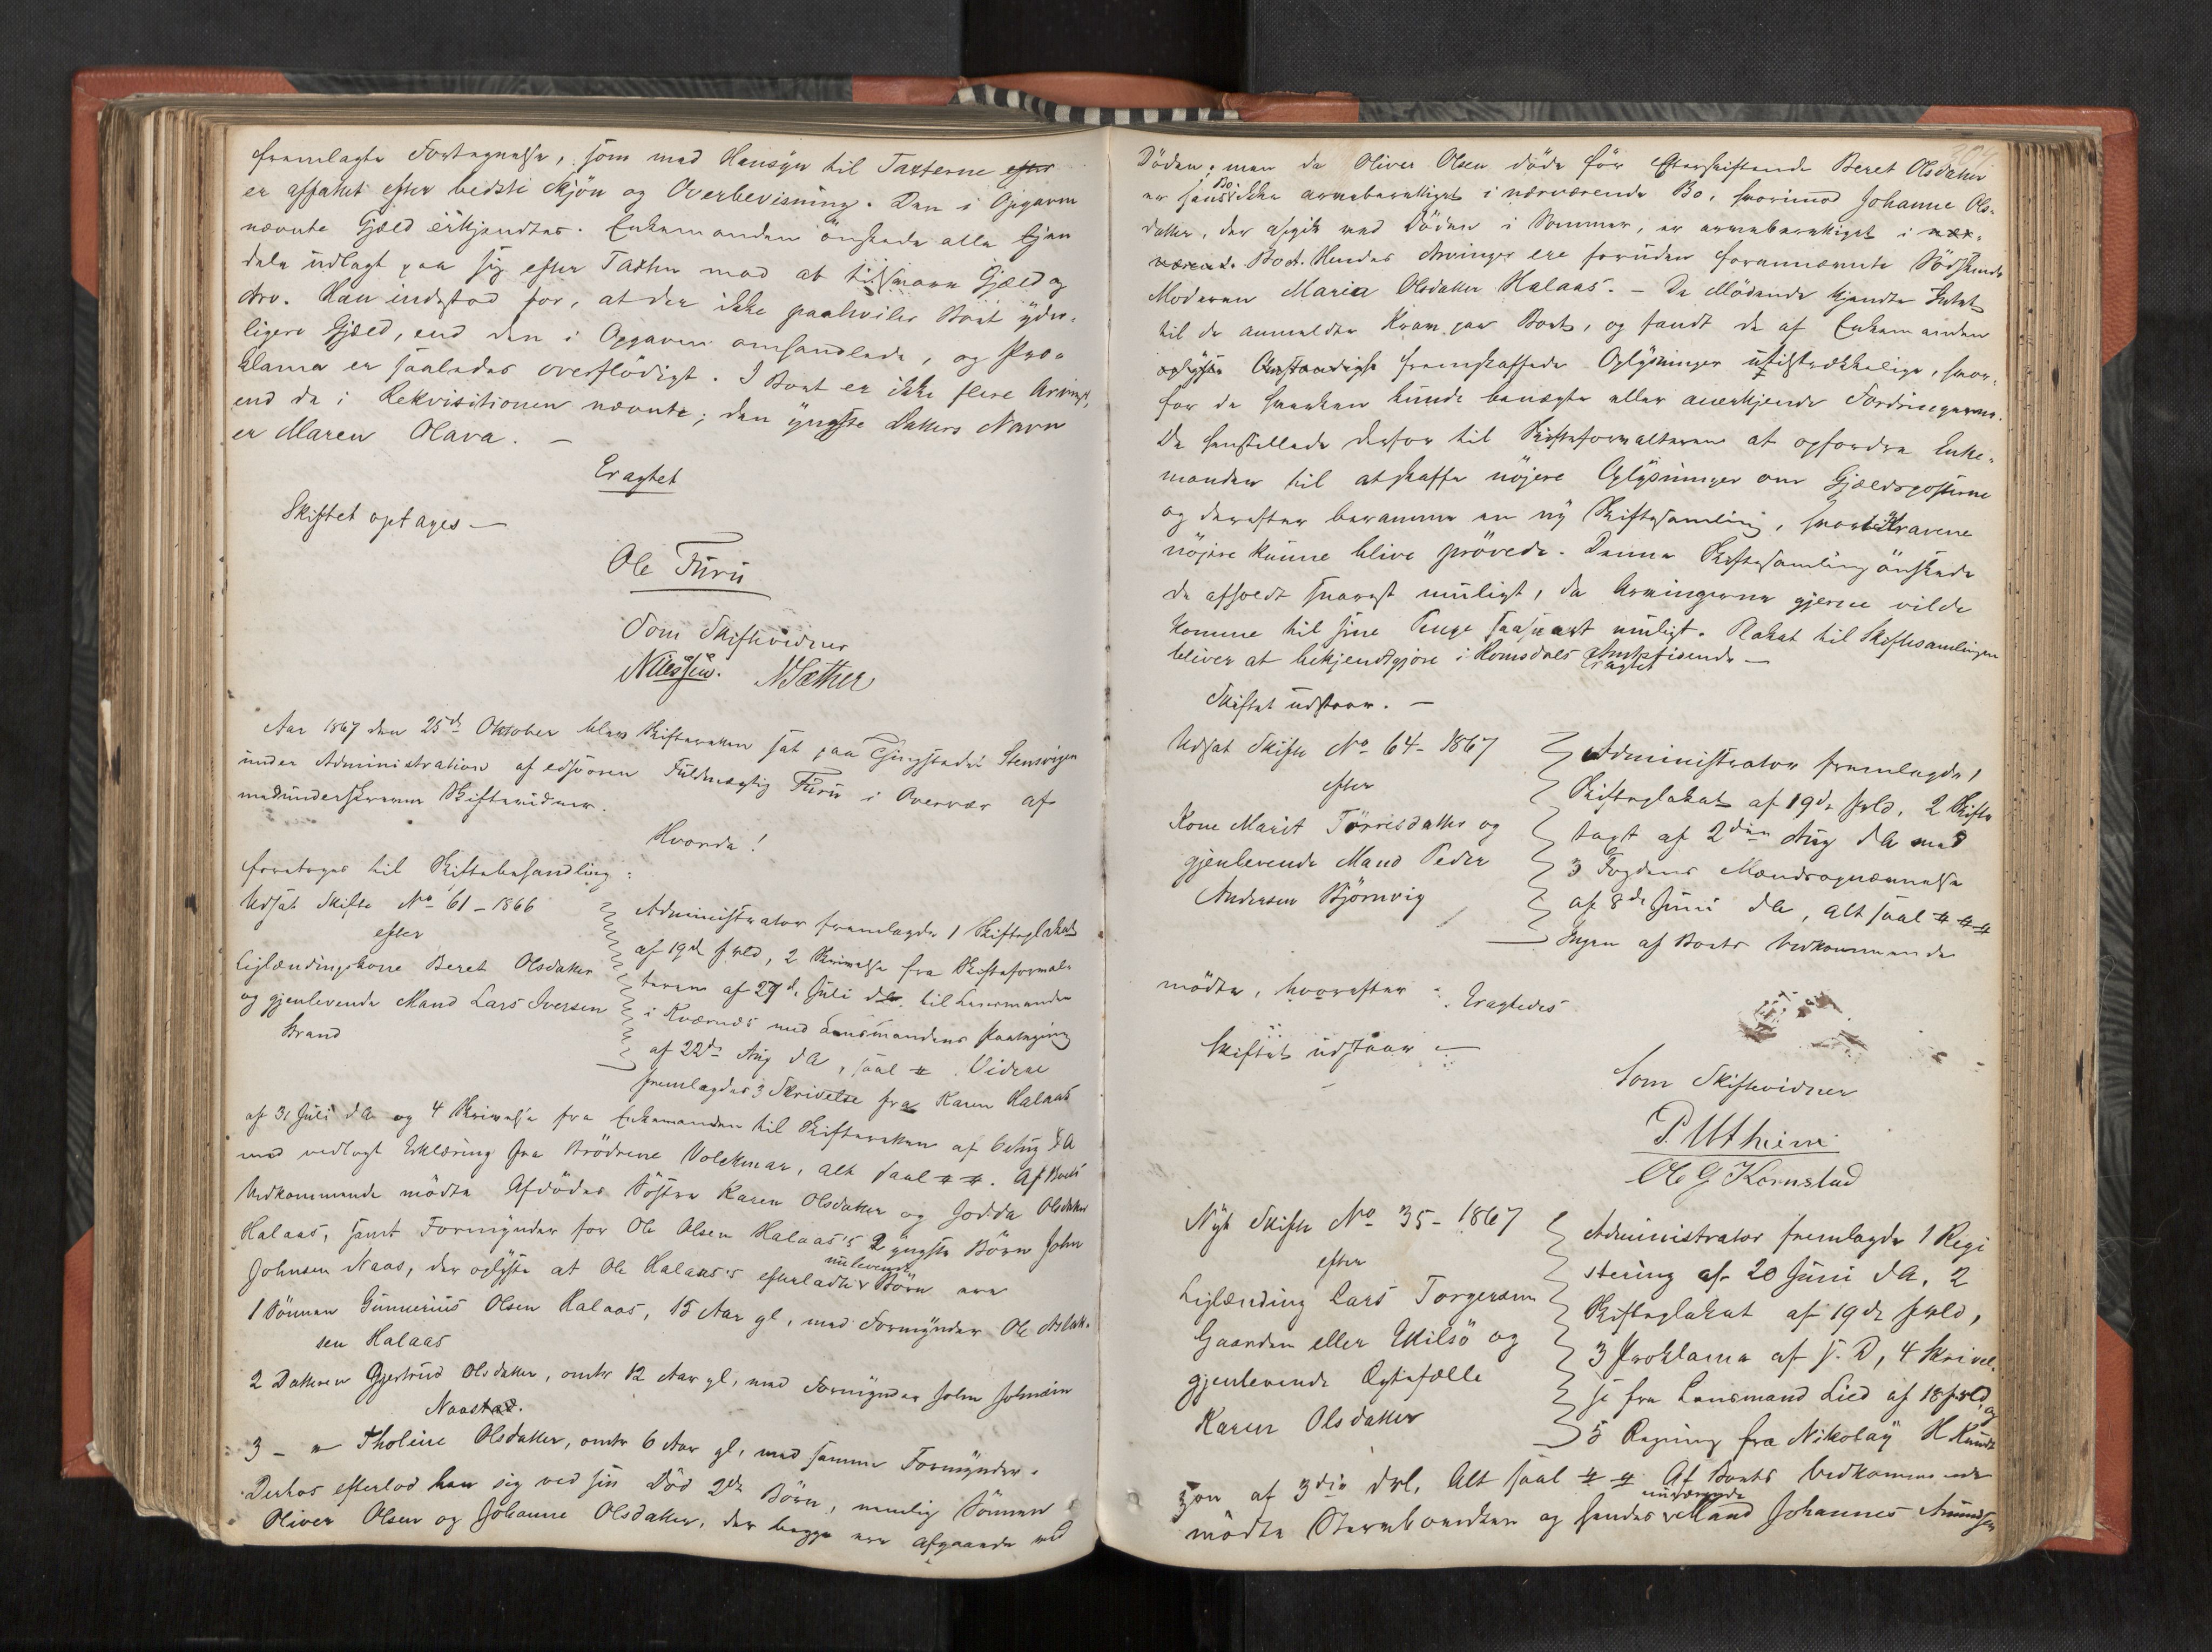 fremlagte Fortegnelse, som med Hensyn til Taxterne efter
er affattet efter bedste Skjøn og Overbevisning. Den i Opgaven
nævnte Gjæld erkjendtes. Enkemanden ønskede alle Ejen
dele udlagt paa sig efter Taxten mod at tilsvare Gjæld og
Arv. Han indestod for, at der ikke paahviler Boet yder-
ligere Gjæld, end den i Opgaven omhandlede, og Pro-
klama er saaledes overflødigt. I Boet er ikke flere Arvinger,
end de i Rekvisitionen nævnte; den yngste Datters Navn
er Maren Olava. —
Eragtet
Skiftet optages —
Ole Furu
Som Skiftevidner
Nilssen. N Sæther
Aar 1867 den 25de Oktober blev Skifteretten sat paa Thingstedet Stensvigen
under Administration af edsvoren Fuldmægtig Furu i Overvær af
medunderskrevne Skiftevidner.
Hvorda!
foretoges til Skiftebehandling:
Udsat Skifte No 61 - 1866
efter
Leilændingskone Beret Olsdatter
og gjenlevende Mand Lars Iversen
Strand
Administrator fremlagde 1 Skifteplakat
af 19de f. Md, 2 Skrivelse fra Skifteforval-
teren af 27de Juli d.A. til Lensmanden
i Kværnæs med Lensmandens Paategning
af 22de Aug d.A, saal #. Videre
fremlagdes 3 Skrivelse fra Karen Halaas
af 31 Juli d.A. og 4 Skrivelse fra Enkemanden til Skifteretten af 6 Aug d.A
med vedlagt Erklæring fra Brødrene Volckmar, alt saal # #. Af Boets
Vedkommende mødte Afdødes Søstre Karen Olsdatter og Jodda Olsdatter
Halaas, samt Formynder for Ole Olsen Halaas's 2 yngste Børn John
Johnsen Naas, der oplyste at Ole Halaas's efterladte nulevende Børn ere
1 Sønnen Gunnerius Olsen Halaas, 15 Aar gl, med Formynder Ole Aslak-
sen Halaas
2 Datteren Gjertrud Olsdatter, omtr 12 Aar gl, med Formynder John Johnsen
Naastad.
3 - " Tholine Olsdatter, omtr 6 Aar gl, med samme Formynder.
Derhos efterlod han sig ved sin Død 2de Børn, nemlig Sønnen
Oliver Olsen og Johanne Olsdatter, der begge ere afgaaede ved
Døden; men da Oliver Olsen døde før Efterskiftende Beret Olsdatter
er hans Bo ikke arveberettiget i nærværende Bo, hvorimod Johanne Ols-
datter, der afgik ved Døden i Sommer, er arveberettiget i nær-
værende Boet. Hendes Arvinger ere foruden forannævnte Sødskende
Moderen Maria Olsdatter Halaas. — De Mødende kjendte Intet
til de anmeldte Krav paa Boet, og fandt de af Enkemanden
oplyste Omstændighe fremskaffede Oplysninger utilstrækkelige, hvor-
for de hverken kunde benægte eller anerkjende Fordringerne.
De henstillede derfor til Skifteforvalteren at opfordre Enke-
manden til at skaffe nøjere Oplysninger om Gjældsposterne
og derefter beramme en ny Skiftesamling, hvori Kravene
nøjere kunne blive prøvede. Denne Skiftesamling ønskede
de afholdt snarest muligt, da Arvingerne gjerne vilde
komme til sine Penge saasnart muligt. Plakat til Skiftesamlingen
bliver at bekjendtgjøre i Romsdals Amtstidende —
Eragtet
Skiftet udstaar. —
Udsat Skifte No 64 - 1867
efter
Kone Marit Tørrisdatter og
gjenlevende Mand Peder
Andersen Bjørnvig
Administrator fremlagde 1
Skifteplakat af 19de f. Md, 2 Skifte
taxt af 2den Aug d.A med
3 Fogdens Mændsopnævnelse
af 8de Juni d.A, alt saal # # #
Ingen af Boets Vedkommende
mødte, hvorefter
Eragtedes
Skiftet udstaar —
Som Skiftevidner
P. Utheim
Ole G Kornstad
Nyt Skifte No 35 - 1867
efter
Leilænding Lars Torgersen
Gaarden eller Ekilsø og
gjenlevende Ægtefælle
Karen Olsdatter
Administrator fremlagde 1 Regi
strering af 20 Juni d.A, 2
Skifteplakat af 19de f. Md,
3 Proklama af s. D, 4 Skrivel-
se fra Lensmand Lied af 18 f. Md, og
5 Regning fra Nikolay H Knudt
zon af 3die d.M, Alt saal # #. Af Boets Vedkommende
mødte Stervboenken og hendes nuværende Mand Johannes Amundsen